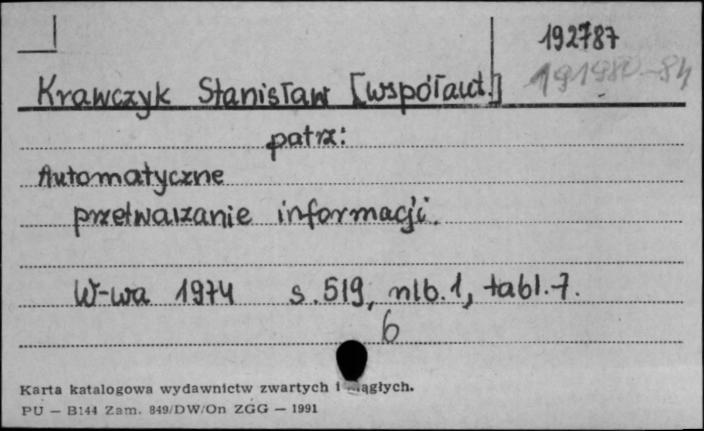 192787
Krawczyk Stanisław [współaut.]
patrz:
Automatyczne
przetwarzanie informacji.
W-wa 1974 s. 519, nlb. 1, tabl. 7.
6
Karta katalogowa wydawnictw zwartych i ciągłych.
PU — B144 Zam. 849/DW/On ZGG — 1991